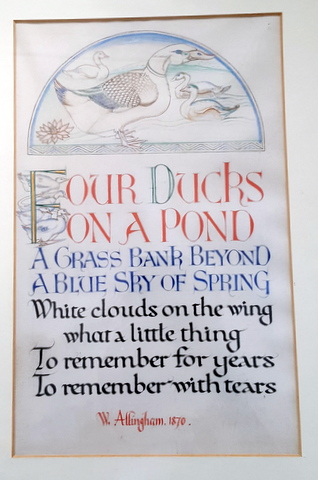 Four Ducks
on a Pond
A Grass Bank Beyond
A Blue Sky of Spring
White clouds on the wing
what a little thing
To remember for years
To remember with tears
W. Allingham. 1870.